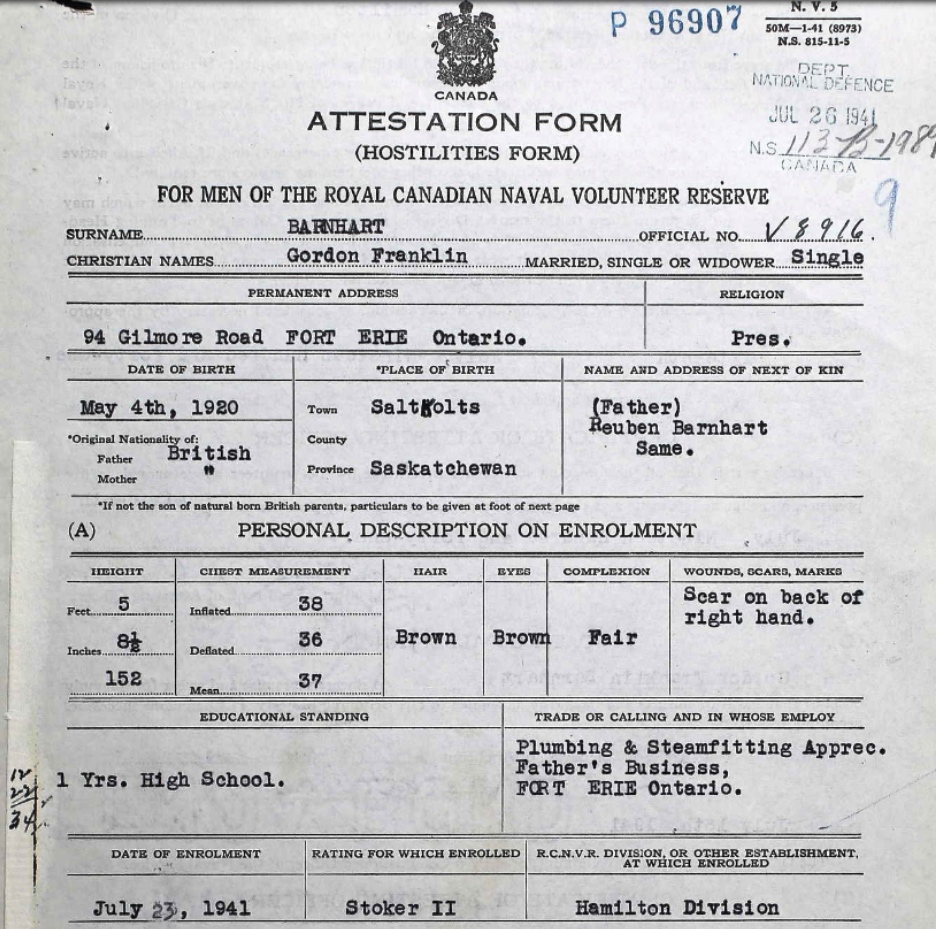 P 96907
N. V. 5
50M—1-41 (8973)
N.S. 815-11-5
DEPT.
NATIONAL DEFENCE
JUL 26 1941
N.S. 113-B-1989
CANADA
CANADA
ATTESTATION FORM
(HOSTILITIES FORM)
9
FOR MEN OF THE ROYAL CANADIAN NAVAL VOLUNTEER RESERVE
SURNAME BARNHART OFFICIAL NO. V 8916.
CHRISTIAN NAMES Gordon Franklin MARRIED, SINGLE OR WIDOWER Single
PERMANENT ADDRESS RELIGION
94 Gilmore Road FORT ERIE Ontario. Pres.
DATE OF BIRTH *PLACE OF BIRTH NAME AND ADDRESS OF NEXT OF KIN
May 4th, 1920 Town Saltkolts (Father)
Reuben Barnhart
*Original Nationality of: County Same.
Father British
Mother " Province Saskatchewan
*If not the son of natural born British parents, particulars to be given at foot of next page
(A) PERSONAL DESCRIPTION ON ENROLMENT
HEIGHT CHEST MEASUREMENT HAIR EYES COMPLEXION WOUNDS, SCARS, MARKS
Feet 5 Inflated 38 Scar on back of
right hand.
Inches 8½ Deflated 36 Brown Brown Fair
152 Mean 37
EDUCATIONAL STANDING TRADE OR CALLING AND IN WHOSE EMPLOY
1 Yrs. High School. Plumbing & Steamfitting Apprec.
Father's Business,
FORT ERIE Ontario.
12
22
34
DATE OF ENROLMENT RATING FOR WHICH ENROLLED R.C.N.V.R. DIVISION, OR OTHER ESTABLISHMENT,
AT WHICH ENROLLED
July 23, 1941 Stoker II Hamilton Division